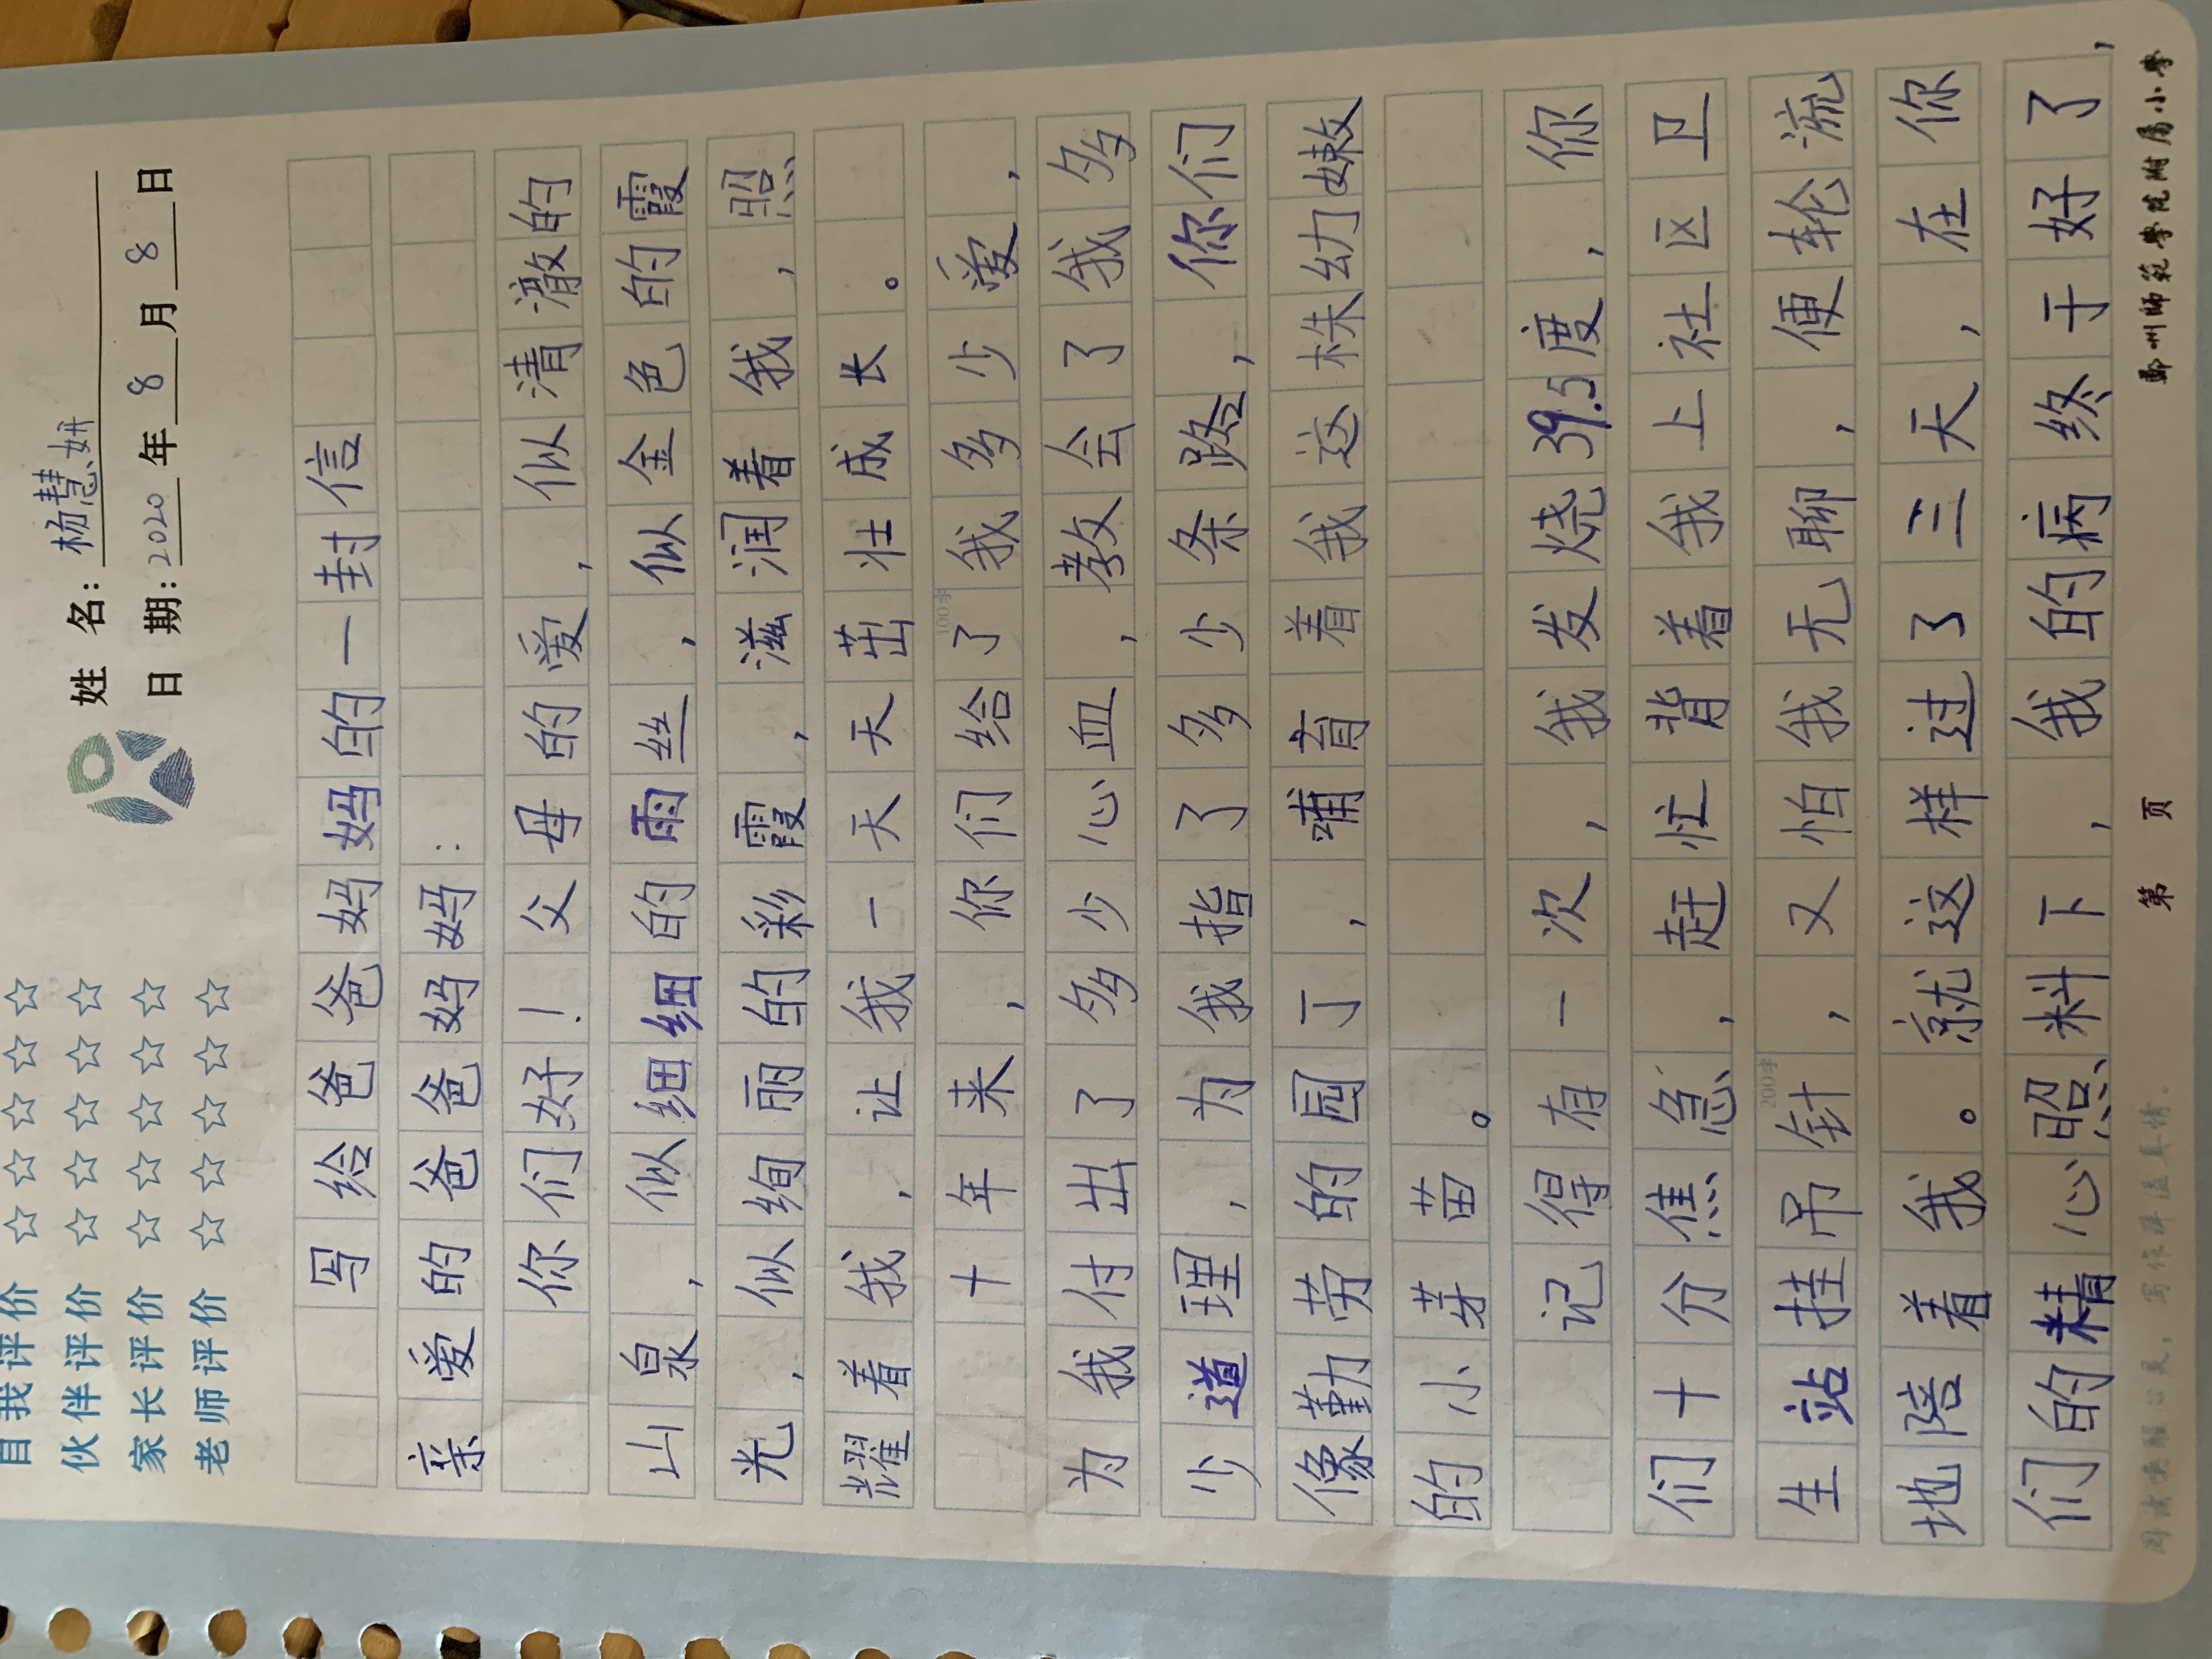 自我评价 ☆ ☆ ☆ ☆ ☆
伙伴评价 ☆ ☆ ☆ ☆ ☆
家长评价 ☆ ☆ ☆ ☆ ☆
老师评价 ☆ ☆ ☆ ☆ ☆
姓 名：杨慧妍
日 期：2020年8月8日
写给爸爸妈妈的一封信
亲爱的爸爸妈妈：
你们好！父母的爱，似清澈的
山泉，似细细的雨丝，似金色的霞
光，似绚丽的彩霞，滋润着我，照
耀着我，让我一天天茁壮成长。
十年来，你们给了我多少爱，
为我付出了多少心血，教会了我多
少道理，为我指了多少条路，你们
像勤劳的园丁，哺育着我这株幼嫩
的小芽苗。
记得有一次，我发烧39.5度，你
们十分焦急，赶忙背着我上社区卫
生站挂吊针，又怕我无聊，便轮流
地陪着我。就这样过了三天，在你
们的精心照料下，我的病终于好了，
100字
200字
阅读唤醒心灵，写作洋溢真情。
第 页
鄭州師範學院附屬小學